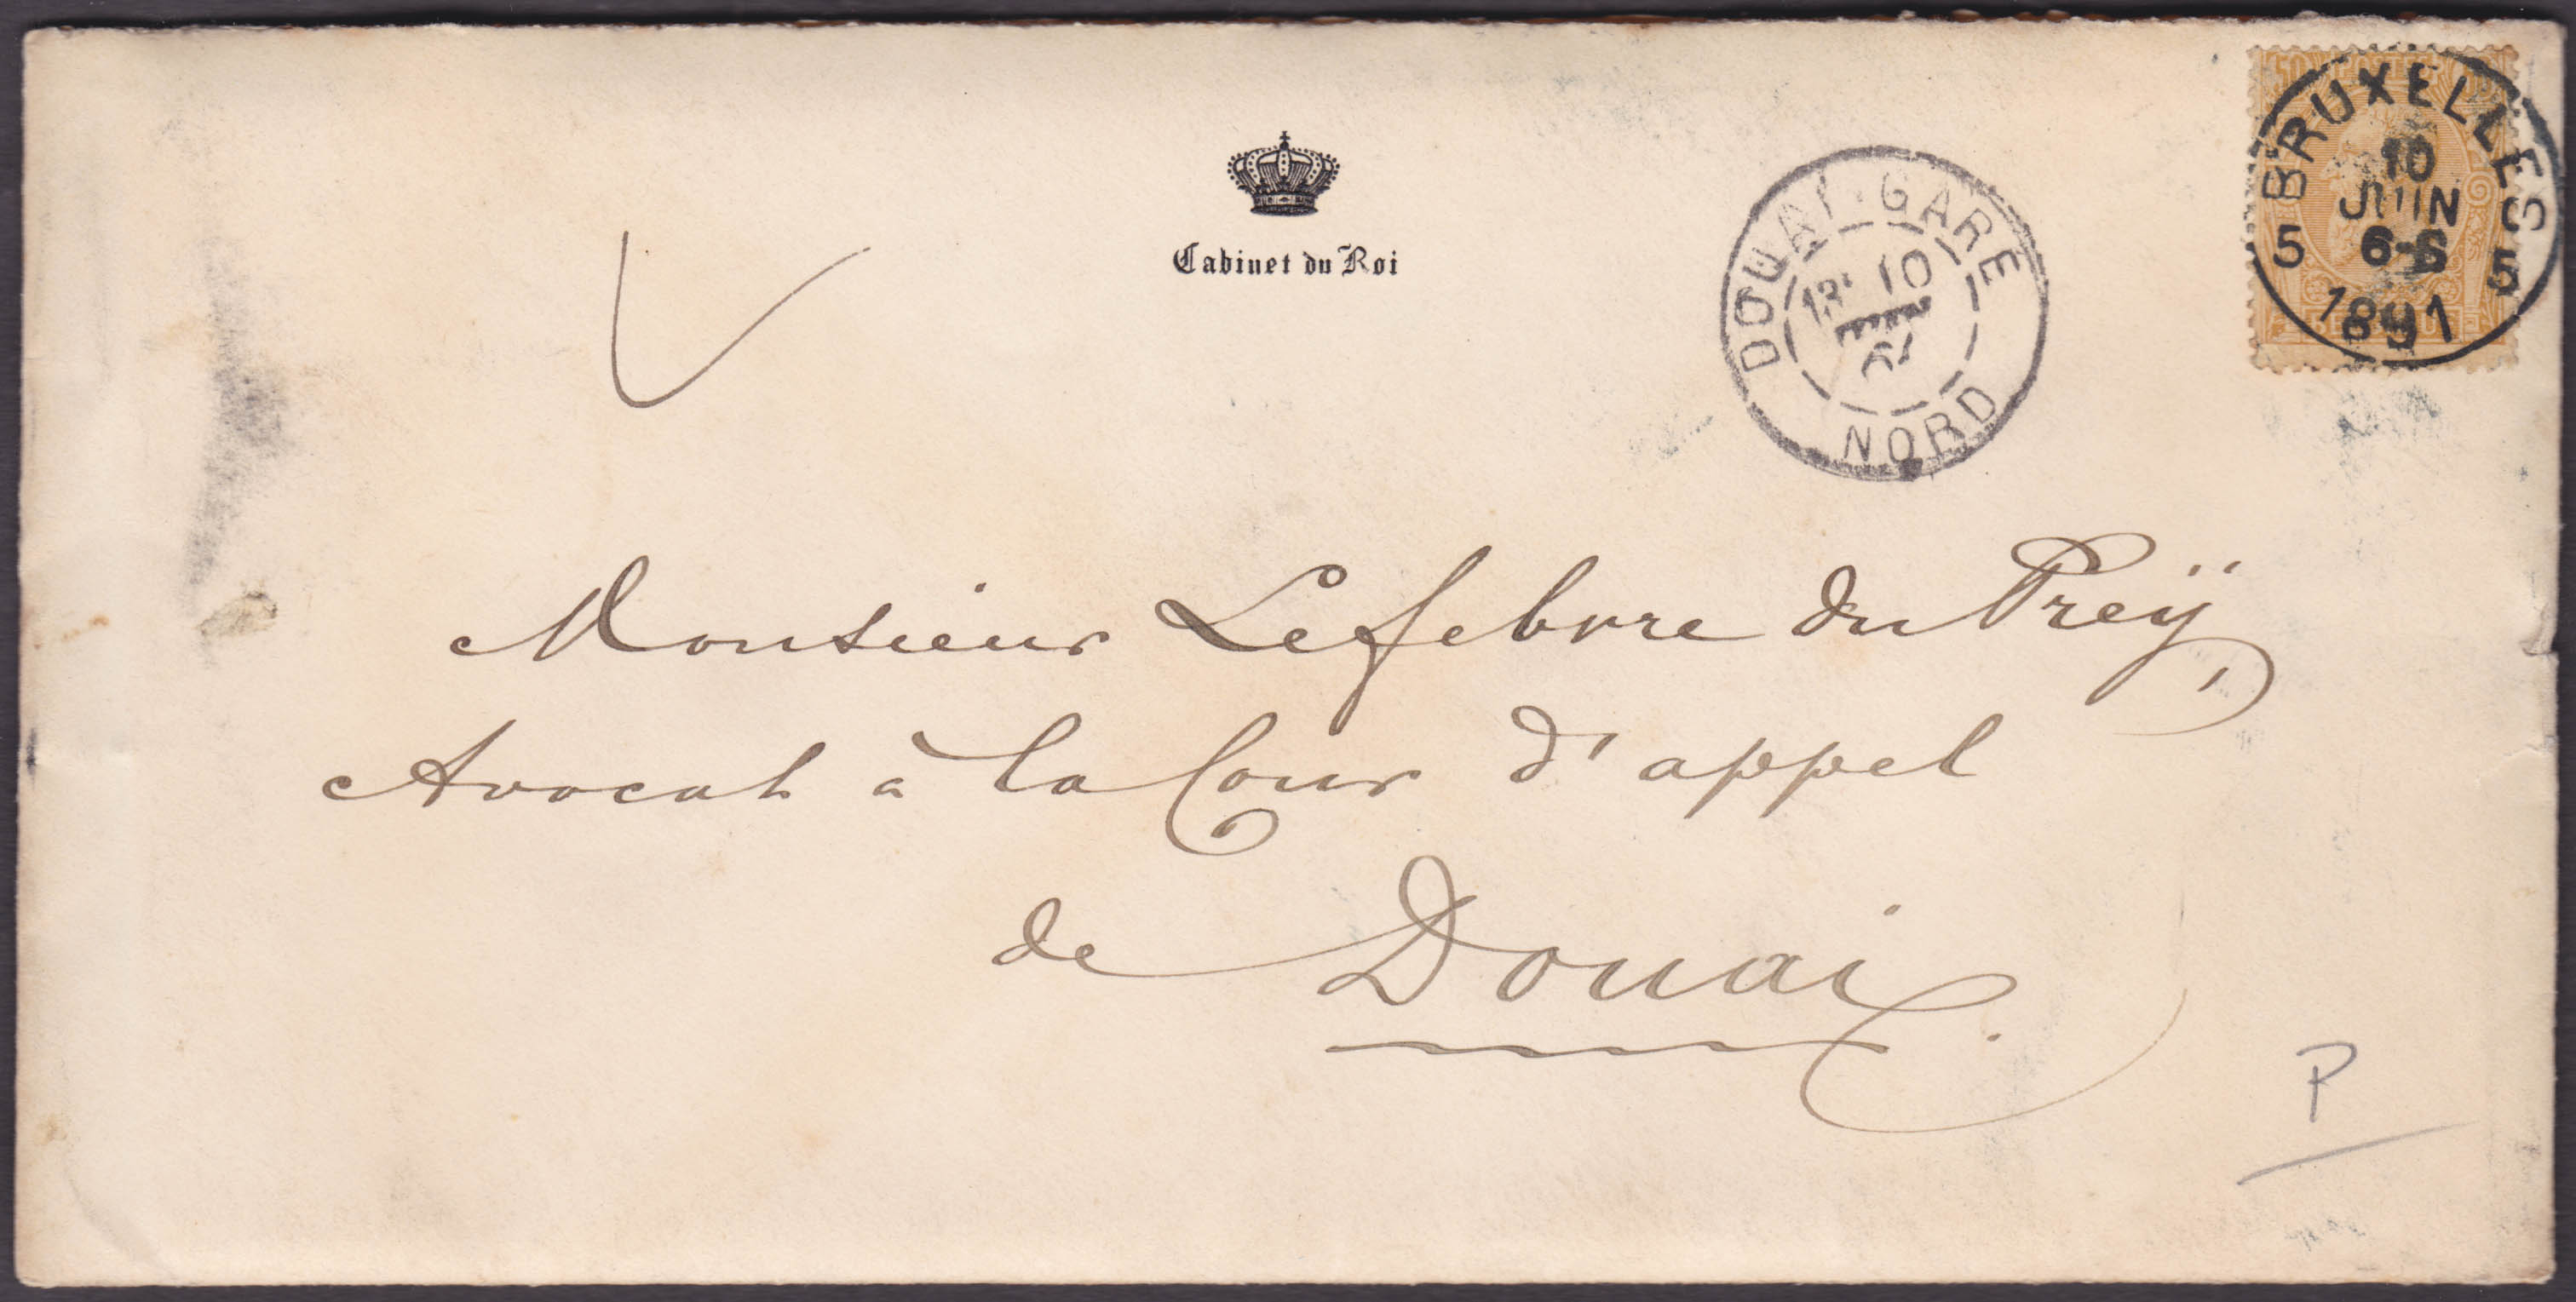 Cabinet du Roi
DOUAI-GARE
10
NORD
50
BRUXELLES
10
JUIN
6-S
5 5
1891
Monsieur Lefebvre du Preÿ,
Avocat à la Cour d'appel
de Douai.
P